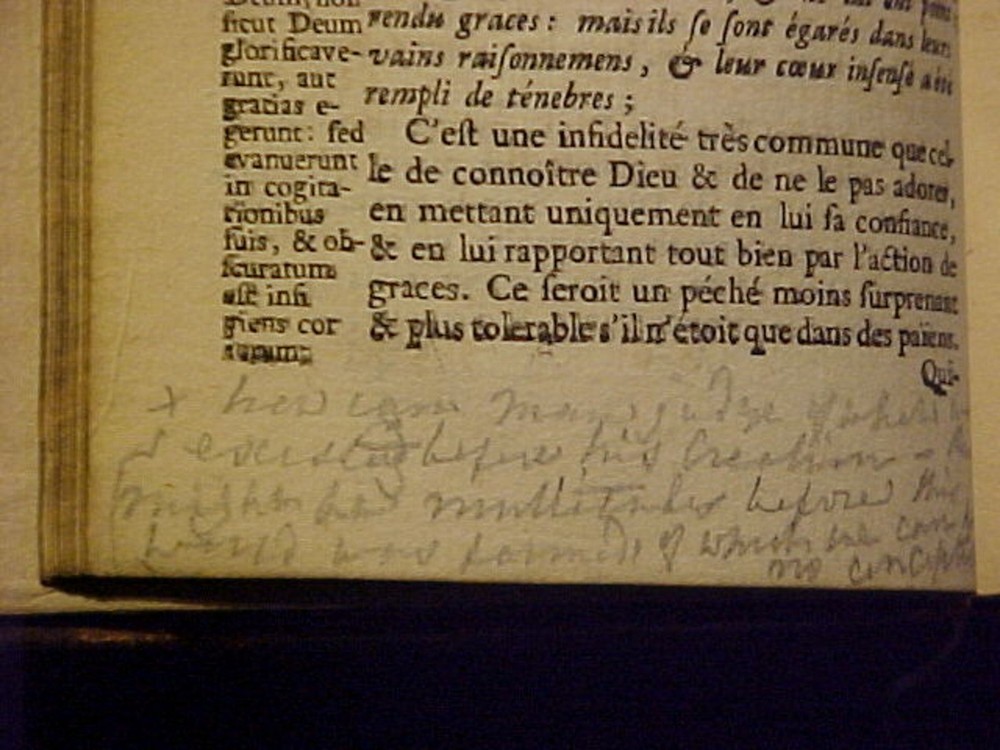 sicut Deum
glorificave-
runt, aut
gratias e-
gerunt: sed
evanuerunt
in cogita-
tionibus
suis, & ob-
scuratum
est insi
piens cor
eorum;
rendu graces : mais ils ſe ſont égarés dans leurs
vains raiſonnemens, & leur cœur inſenſé a été
rempli de ténebres ;
C'eſt une infidelité très commune que cel-
le de connoître Dieu & de ne le pas adorer,
en mettant uniquement en lui ſa confiance,
& en lui rapportant tout bien par l'action de
graces. Ce ſeroit un péché moins ſurprenant
& plus tolerable s'il n'étoit que dans des païens.
Qui-
x how can man judge of what
existed before his Creation -
might had multitudes before this
world was formed, of which we can
no conception